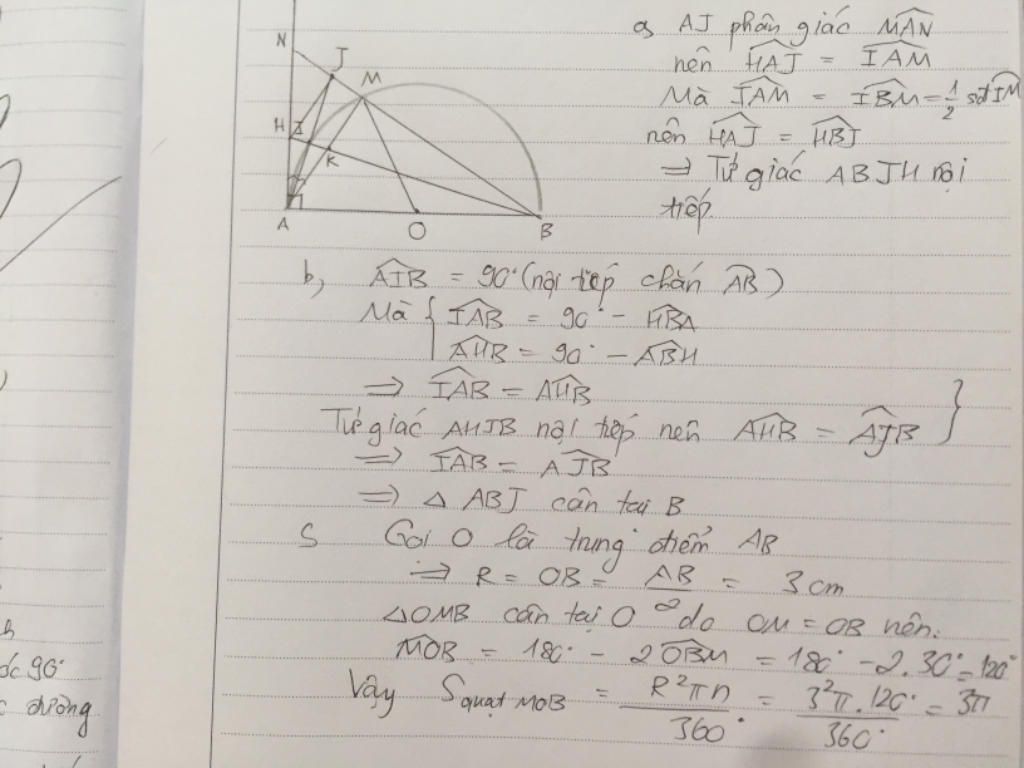 N
J
M
H
I
K
A
O
B
a, AJ phân giác MAN
nên HAJ = IAM
Mà IAM = IBM = 1/2 sđ IM
nên HAJ = HBJ
=> Tứ giác ABJH nội
tiếp
b, AIB = 90° (nội tiếp chắn AB)
Mà { IAB = 90° - HBA
AHB = 90° - ABH
=> IAB = AHB
Tứ giác AHJB nội tiếp nên AHB = AJB }
=> IAB = AJB
=> Δ ABJ cân tại B
Gọi O là trung điểm AB
=> R = OB = AB = 3 cm
ΔOMB cân tại O do OM = OB nên:
MOB = 180° - 2OBM = 180° - 2.30° = 120°
Vậy S quạt MOB = R²πn / 360° = 3²π.120° / 360° = 3π
ốc 90°
đường